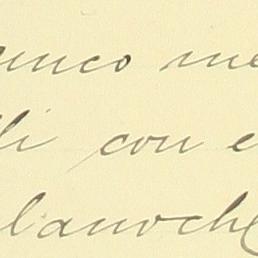 unco me
lli con e
lanoche